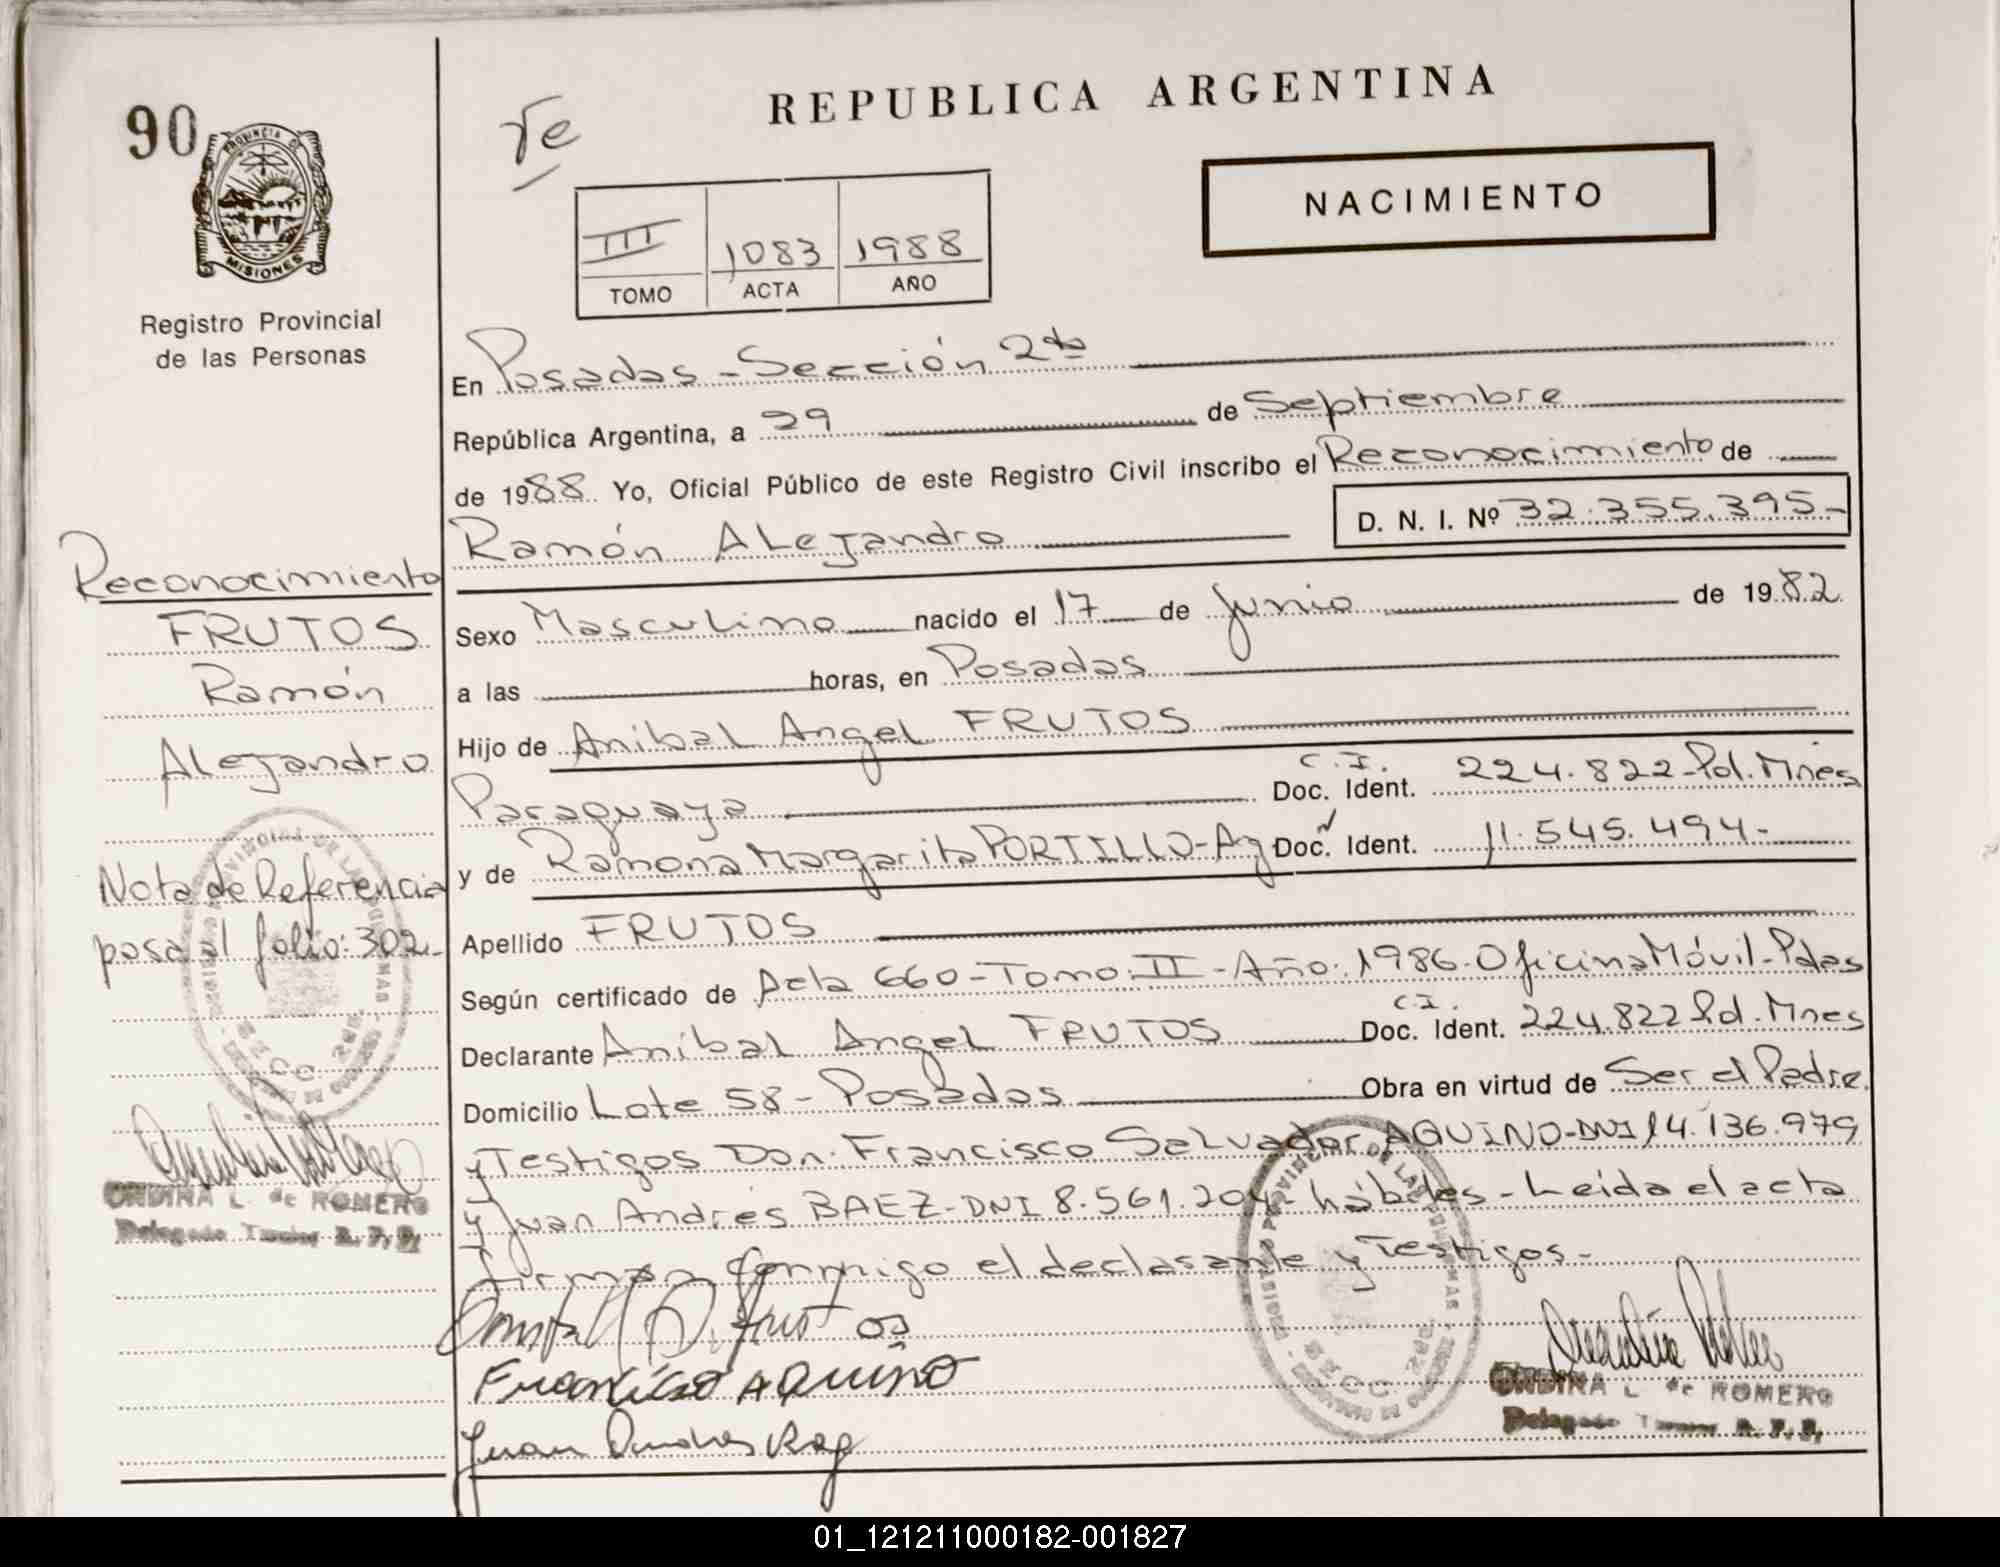 90
PROVINCIA DE
MISIONES
Registro Provincial
de las Personas
Reconocimiento
FRUTOS
Ramón
Alejandro
Nota de Referencia
pasa al folio: 302.-
ORDINA L. de ROMERO
Delegado R. P. P.
REPUBLICA ARGENTINA
NACIMIENTO
III 1083 1988
TOMO ACTA AÑO
En Posadas - Sección 2da
República Argentina, a 29 de Septiembre
de 1988. Yo, Oficial Público de este Registro Civil inscribo el Reconocimiento de
Ramón Alejandro D. N. I. Nº 32.355.395-
Sexo Masculino nacido el 17 de Junio de 1982
a las horas, en Posadas
Hijo de Anibal Angel FRUTOS
Paraguaya C.I. Doc. Ident. 224.822-Pol. Mnes
y de Ramona Margarita PORTILLO-Ag Doc. Ident. 11.545.494-
Apellido FRUTOS
Según certificado de Acta 660-Tomo: II-Año: 1986-Oficina Móvil-Pdas
Declarante Anibal Angel FRUTOS C.I. Doc. Ident. 224.822 Pol. Mnes
Domicilio Lote 58 - Posadas Obra en virtud de Ser el Padre.
y Testigos Don. Francisco Salvador AQUINO-DNI 14.136.979
y Juan Andrés BAEZ-DNI 8.561.204- hábiles - Leida el acta
firman conmigo el declarante y Testigos.-
Francisco AQUINO
Juan
ORDINA L. de ROMERO
Delegado R. P. P.
01_121211000182-001827